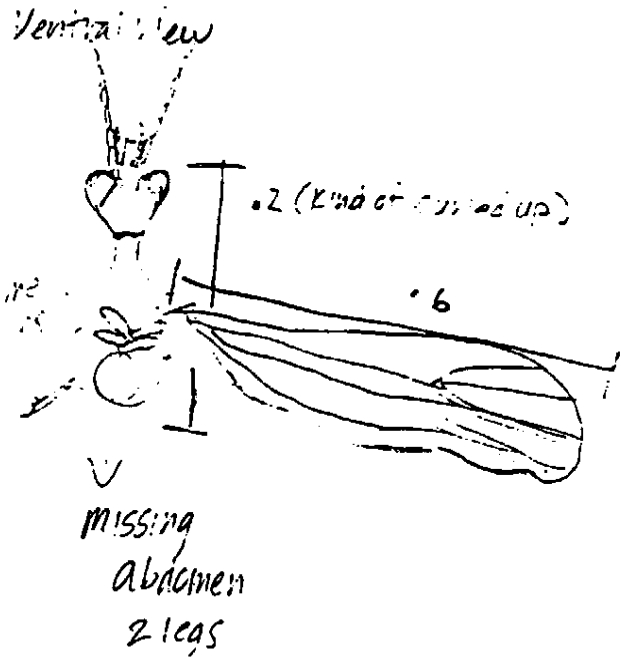 Ventral View
.2 (Kind of curled up)
.6
missing
abdomen
2 legs